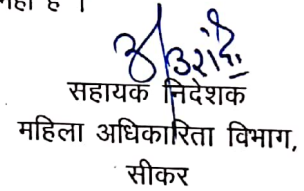 है ।
सहायक निदेशक
महिला अधिकारिता विभाग,
सीकर